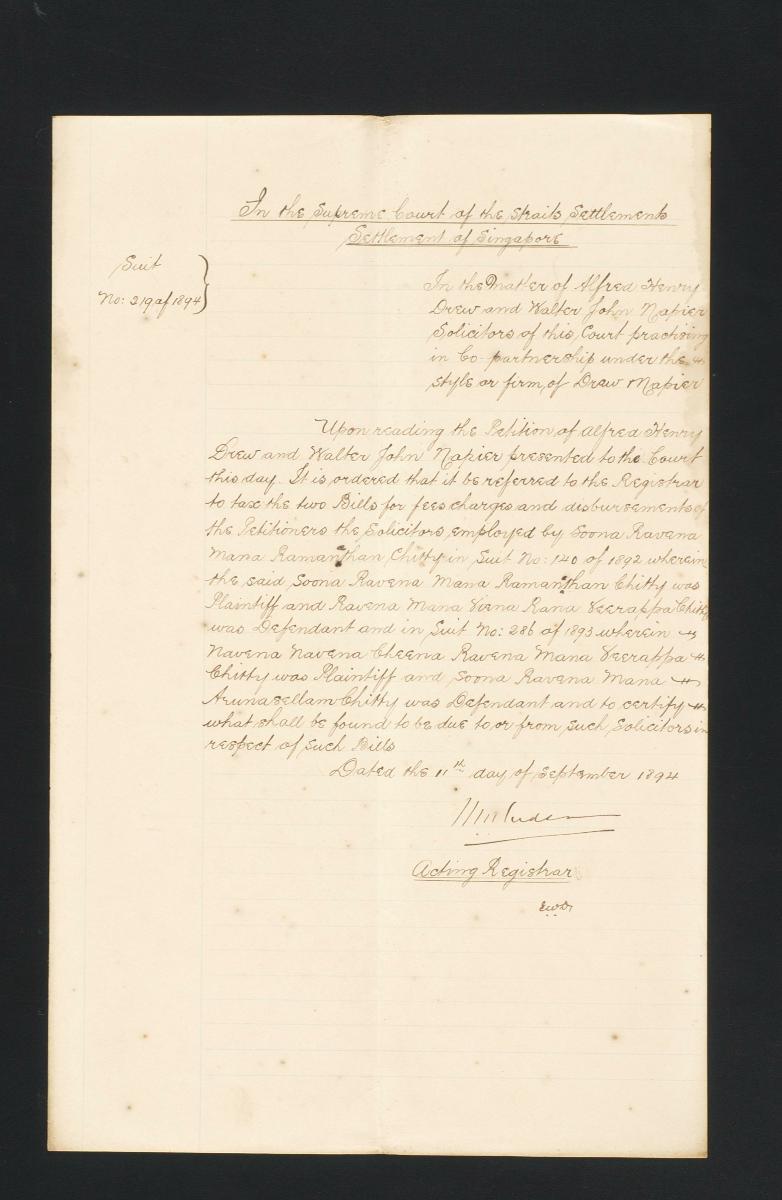 In the Supreme Court of the Straits Settlements
Settlement of Singapore
Suit
No: 219 of 1894
In the Matter of Alfred Henry
Drew and Walter John Napier
Solicitors of this Court practising
in Co-partnership under the
style or firm of Drew Napier
Upon reading the Petition of Alfred Henry
Drew and Walter John Napier presented to the Court
this day. It is ordered that it be referred to the Registrar
to tax the two Bills for fees charges and disbursements of
the Petitioners the Solicitors employed by Soona Ravena
Mana Ramanthan Chitty in Suit No: 140 of 1892 wherein
the said Soona Ravena Mana Ramanthan Chitty was
Plaintiff and Ravena Mana Viena Rana Veerappa Chitty
was Defendant and in Suit No: 286 of 1893 wherein
Navena Navena Cheena Ravena Mana Veerappa
Chitty was Plaintiff and Soona Ravena Mana
Arunasellam Chitty was Defendant and to certify
what shall be found to be due to or from such Solicitors in
respect of such Bills
Dated the 11th day of September 1894
Acting Registrar